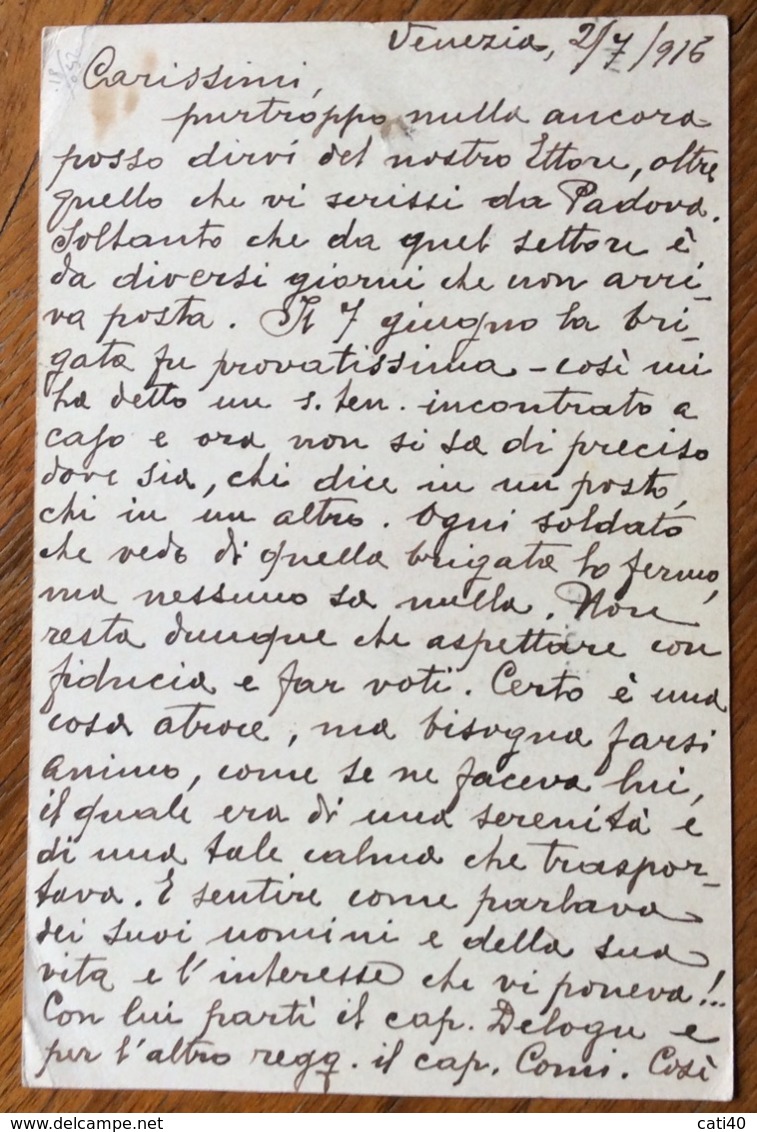 Venezia, 2/7/916
Carissimi,
purtroppo nulla ancora
posso dirvi del nostro Ettore, oltre
quello che vi scrissi da Padova.
Soltanto che da quel settore è
da diversi giorni che non arri-
va posta. Il 7 giugno la bri-
gata fu provatissima - così mi
ha detto un s. ten. incontrato a
caso e ora non si sa di preciso
dove sia, chi dice in un posto,
chi in un altro. Ogni soldato
che vedo di quella brigata lo fermo,
ma nessuno sa nulla. Non
resta dunque che aspettare con
fiducia e far voti. Certo è una
cosa atroce, ma bisogna farsi
animo, come se ne faceva lui,
il quale era di una serenità e
di una tale calma che traspor-
tava. E sentire come parlava
dei suoi uomini e della sua
vita e l'interesse che vi poneva!..
Con lui partì il cap. Delogu e
per l'altro regg. il cap. Comi. Così
cati40